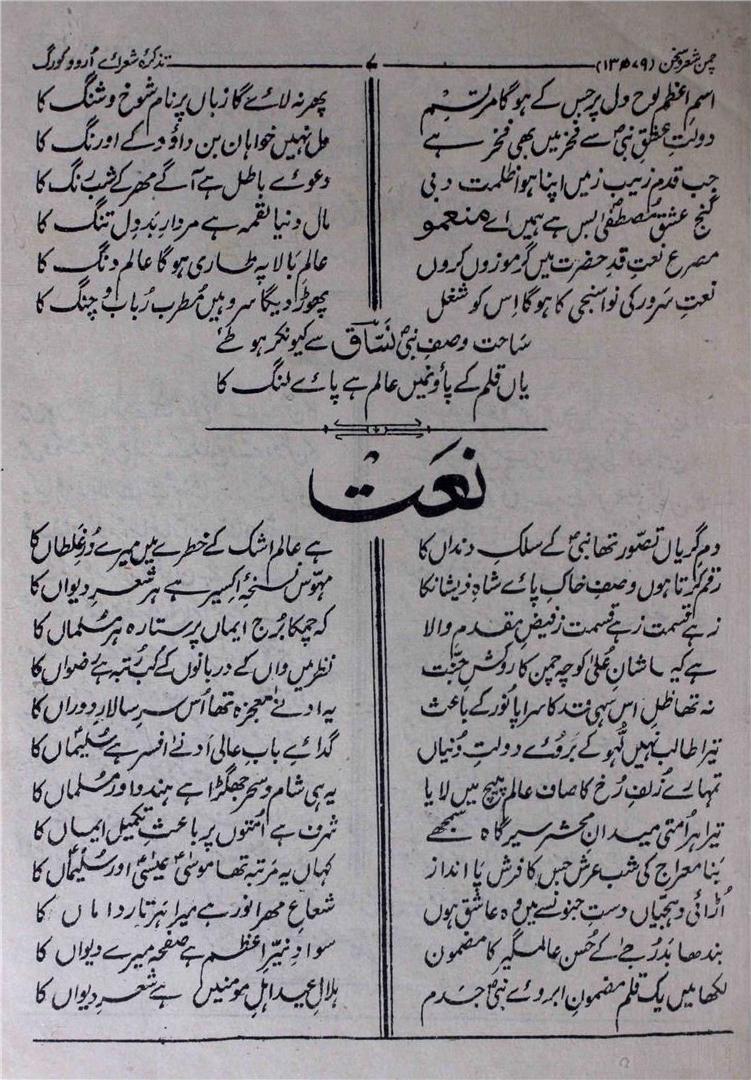 چمن شعر و سخن (۱۳۵۷۹) ۷ تذکرۂ شعرائے اُردو کورگ
اسمِ اعظم لوح دل پر جس کے ہوگا مرتسم پھر نہ لائے گا زباں پر نام شوخ و شنگ کا
دولتِ عشقِ نبیؐ سے فخر میں بھی فخر ہے مل نہیں خواہان بن داؤد کے اورنگ کا
جب قدم زیب زمیں اپنا ہوا ظلمت دبی دعوے باطل ہے آگے مہر کے شب رنگ کا
گنج عشقِ مصطفیٰؐ بس ہے ہمیں اے منعمو مال دنیا لقمہ ہے مردارِ بد دل تنگ کا
مصرع نعت قدِ حضرت میں گر موزوں کروں عالمِ بالا پہ طاری ہوگا عالم دنگ کا
نعتِ سَرور کی نوا سنجی کا ہوگا اِس کو شغل چھوڑ دیگا سرو ہیں مُطرب رُباب و چنگ کا
سَاحت وصفِ نبیؐ نسّاق سے کیونکر ہو طے
یاں قلم کے پاؤنمیں عالم ہے پائے لنگ کا
نعَت
دمِ گریاں تصوّر تھا نبیؐ کے سلکِ دنداں کا ہے عالم اشک کے خطرے میں میرے دُرِ غلطاں کا
رقم کرتا ہوں وصفِ خاک پائے شاہِ ذیشانکا مہوّس نسخۂ اکسیر ہے ہر شعر دیواں کا
زہے قسمت زہے قسمت ز فیضِ مقدم والا کہ چمکا بُرج ایماں پر ستارہ ہر مُسلماں کا
ہے کیا شانِ عُلیٰ کوچہ چمن کا روشِ جنّت نظر میں واں کے دربانوں کے کب رُتبہ ہے رضواں کا
نہ تھا ظل اس سہی قد کا سراپا نُور کے باعث یہ ادنےٰ معجزہ تھا اُس سرِ سالارِ دوراں کا
تیرا طالب نہیں لہُو کے بَروئے دولتِ دُنیاں گدائے بابِ عالی اَدنےٰ افسر ہے سُلیماں کا
تمہارے زُلف رُخ کا صاف عالم پیچ میں لایا یہ ہی شام و سحر جھگڑا ہے ہندو اور مُسلماں کا
تیرا ہر اُمتی میدانِ محشر سیر گاہ سمجھے شرف ہے اُمتوں پر باعثِ تکمیل ایماں کا
بَنا معراج کی شب عرش جس کا فرش پَا انداز کہاں یہ مَرتبہ تھا موسیٰؑ عیسٰیؑ اور سُلیمٰاںؑ کا
اُڑائی دہجیاں دستِ جنوں سے میں وہ عاشق ہوں شعاعِ مہر انور ہے میرا ہر تار داماں کا
بندھا بَدرُ دجےٰ کے حُسن عالمگیر کا مضمون سوادِ نیّرِ اعظم ہے صفحہ میرے دیواں کا
لکھا میں یک قلم مضمونِ ابروئے نبیؐ جدم ہلالِ عید اہلِ مومنیں ہے شعرِ دیواں کا